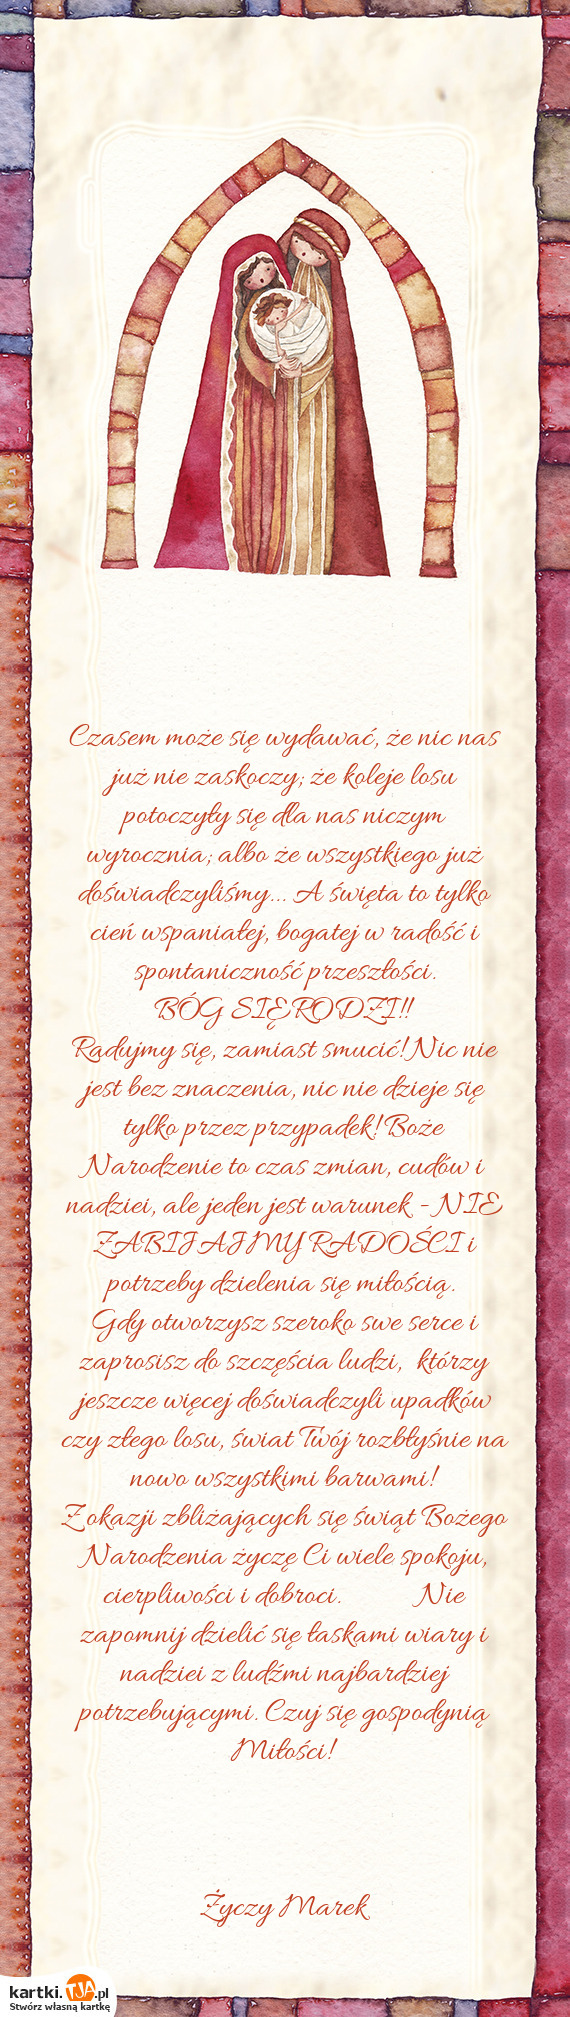 Czasem może się wydawać, że nic nas
już nie zaskoczy; że koleje losu
potoczyły się dla nas niczym
wyrocznia; albo że wszystkiego już
doświadczyliśmy... A święta to tylko
cień wspaniałej, bogatej w radość i
spontaniczność przeszłości.
BÓG SIĘ RODZI!!
Radujmy się, zamiast smucić! Nic nie
jest bez znaczenia, nic nie dzieje się
tylko przez przypadek! Boże
Narodzenie to czas zmian, cudów i
nadziei, ale jeden jest warunek - NIE
ZABIJAJMY RADOŚCI i
potrzeby dzielenia się miłością.
Gdy otworzysz szeroko swe serce i
zaprosisz do szczęścia ludzi, którzy
jeszcze więcej doświadczyli upadków
czy złego losu, świat Twój rozbłyśnie na
nowo wszystkimi barwami!
Z okazji zbliżających się świąt Bożego
Narodzenia życzę Ci wiele spokoju,
cierpliwości i dobroci. Nie
zapomnij dzielić się łaskami wiary i
nadziei z ludźmi najbardziej
potrzebującymi. Czuj się gospodynią
Miłości!
Życzy Marek
kartki.TJA.pl
Stwórz własną kartkę